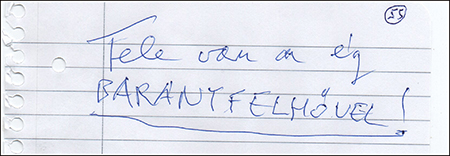 55
Tele van a ég
BÁRÁNYFELHŐVEL!